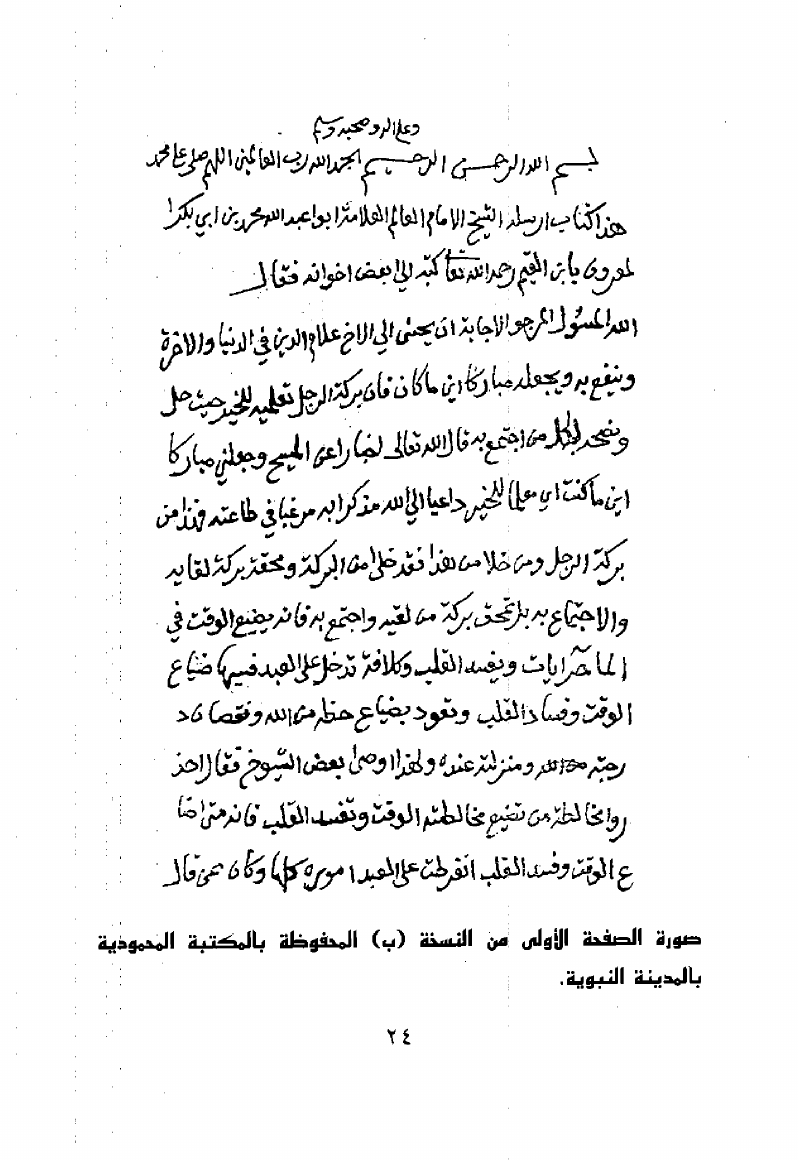 وعلى اله وصحبه وسلم
بسم الله الرحمن الرحيم الحمد لله رب العالمين اللهم صلى على محمد
هذا كتاب ارسله الشيخ الامام العالم العلامة ابو اعبد الله محمد بن ابي بكر ا
لمعروف بابن القيم رحمه الله تعا كتبه الى بعض اخوانه فقال
الله المسؤل المرجو الاجابة ان يحسن الى الاخ علام الدين في الدنيا والاخرة
وينفع به ويجعله مباركا اين ما كان فان بركة الرجل تعليمه للخير حيث حل
ونصحه لكل من اجتمع به قال الله تعالى اخبارا عن المسيح وجعلني مباركا
اين ما كنت اي معلما للخير داعيا الى الله مذكرا به مرغبا في طاعته فهذا من
بركة الرجل ومن خلا من هذا فقد خلى من البركة ومحقة بركة لقايه
والاجتماع به بل تمحق بركة من لقيه واجتمع به فانه يضيع الوقت في
الماجرايات ويفسد القلب وكل افة تدخل على العبد فسببها ضياع
الوقت وفساد القلب وتعود بضياع حظه من الله ونقصان د
رجته ومنزلته عنده ولهذا اوصى بعض الشيوخ فقال احذ
روا مخالطة من تضيع مخالطته الوقت وتفسد القلب فانه متى ضا
ع الوقت وفسد القلب انفرطت على العبد اموره كلها وكان ممن قال
صورة الصفحة الأولى من النسخة (ب) المحفوظة بالمكتبة المحمودية
بالمدينة النبوية.
٢٤